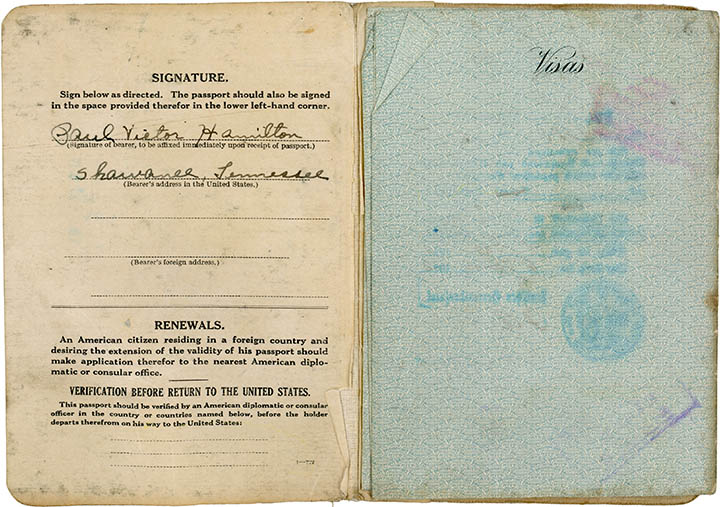 SIGNATURE.
Sign below as directed. The passport should also be signed
in the space provided therefor in the lower left-hand corner.
Paul Victor Hamilton
(Signature of bearer, to be affixed immediately upon receipt of passport.)
Shawanee, Tennessee
(Bearer's address in the United States.)
(Bearer's foreign address.)
RENEWALS.
An American citizen residing in a foreign country and
desiring the extension of the validity of his passport should
make application therefor to the nearest American diplo-
matic or consular office.
VERIFICATION BEFORE RETURN TO THE UNITED STATES.
This passport should be verified by an American diplomatic or consular
officer in the country or countries named below, before the holder
departs therefrom on his way to the United States:
Visas